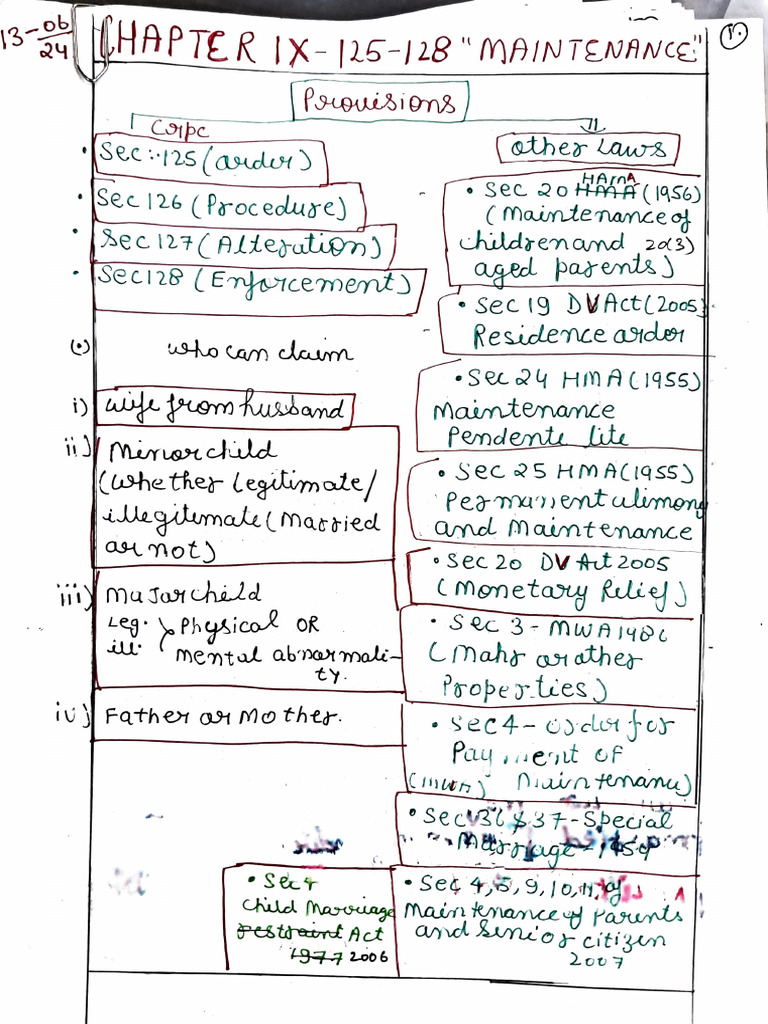 13-06/24
CHAPTER IX-125-128 "MAINTENANCE"
Provisions
Crpc
• Sec:-125 (order)
• Sec 126 (Procedure)
• Sec 127 (Alteration)
• Sec 128 (Enforcement)
(•) who can claim
i) wife from husband
ii) Minor child
(whether legitimate/
illegitimate (married
or not)
iii) Major child
Leg. Physical OR
ill. mental abnormali-
ty.
iv) Father or Mother.
Other Laws
HAMA
• Sec 20 HMA (1956)
(Maintenance of
children and 20(3)
aged parents)
• Sec 19 DV Act (2005)
Residence order
• Sec 24 HMA (1955)
Maintenance
Pendente lite
• Sec 25 HMA (1955)
Permanent alimony
and Maintenance
• Sec 20 DV Act 2005
(Monetary Relief)
• Sec 3 - MWA 1986
(Mahr or other
Properties)
• Sec 4 - order for
Payment of
(MWA) maintenance)
• Sec 36 & 37 - Special
Marriage - 1954
• Sec 4
Child Marriage
restraint Act
1977 2006
• Sec 4, 5, 9, 10, 11, of
Maintenance of Parents
and Senior citizen
2007